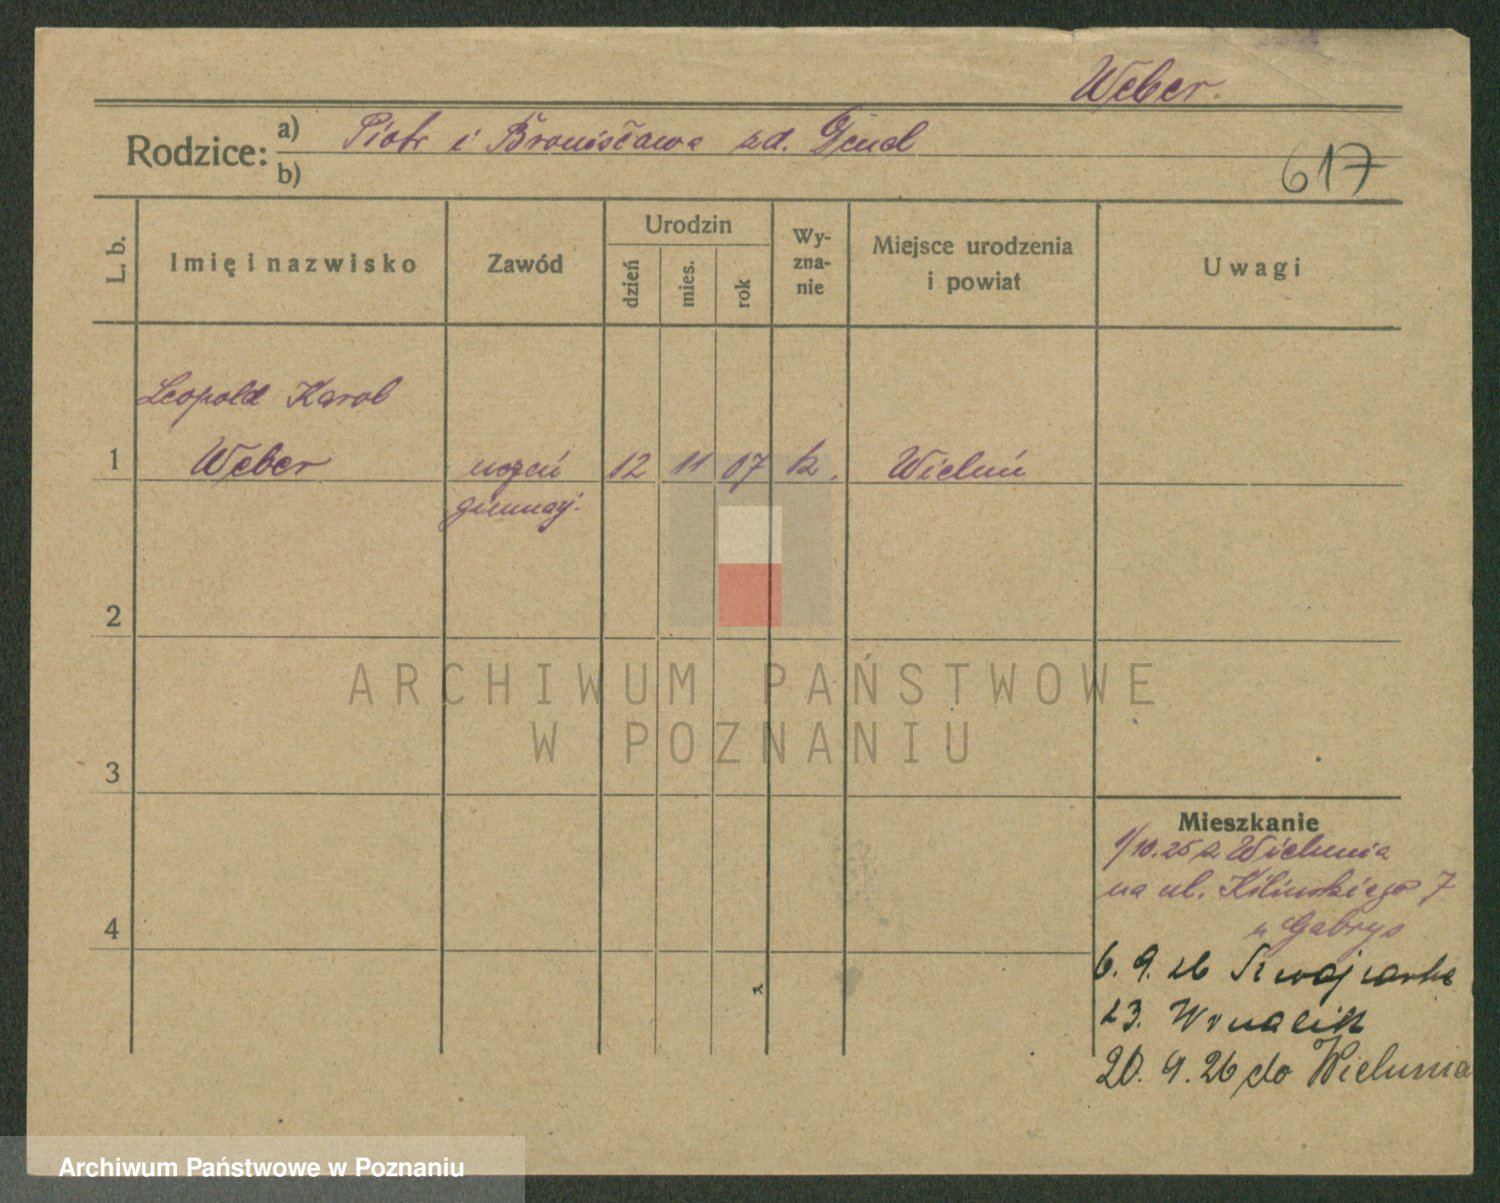 Weber.
Rodzice: a) Piotr i Bronisława zd.
b)
617
L. b.
Imię i nazwisko
Zawód
Urodzin
dzień
mies.
rok
Wy-
zna-
nie
Miejsce urodzenia
i powiat
Uwagi
Leopold Karol
1 Weber uczeń 12 11 07 k. Wieluń
gimnazj.
2
3
4
Mieszkanie
1/10.25 z Wielunia
na ul. Kilińskiego 7
u Gabrys
6. 9. 26 Szwajcarska
23.
20. 9. 26 do Wielunia
ARCHIWUM PAŃSTWOWE
W POZNANIU
Archiwum Państwowe w Poznaniu